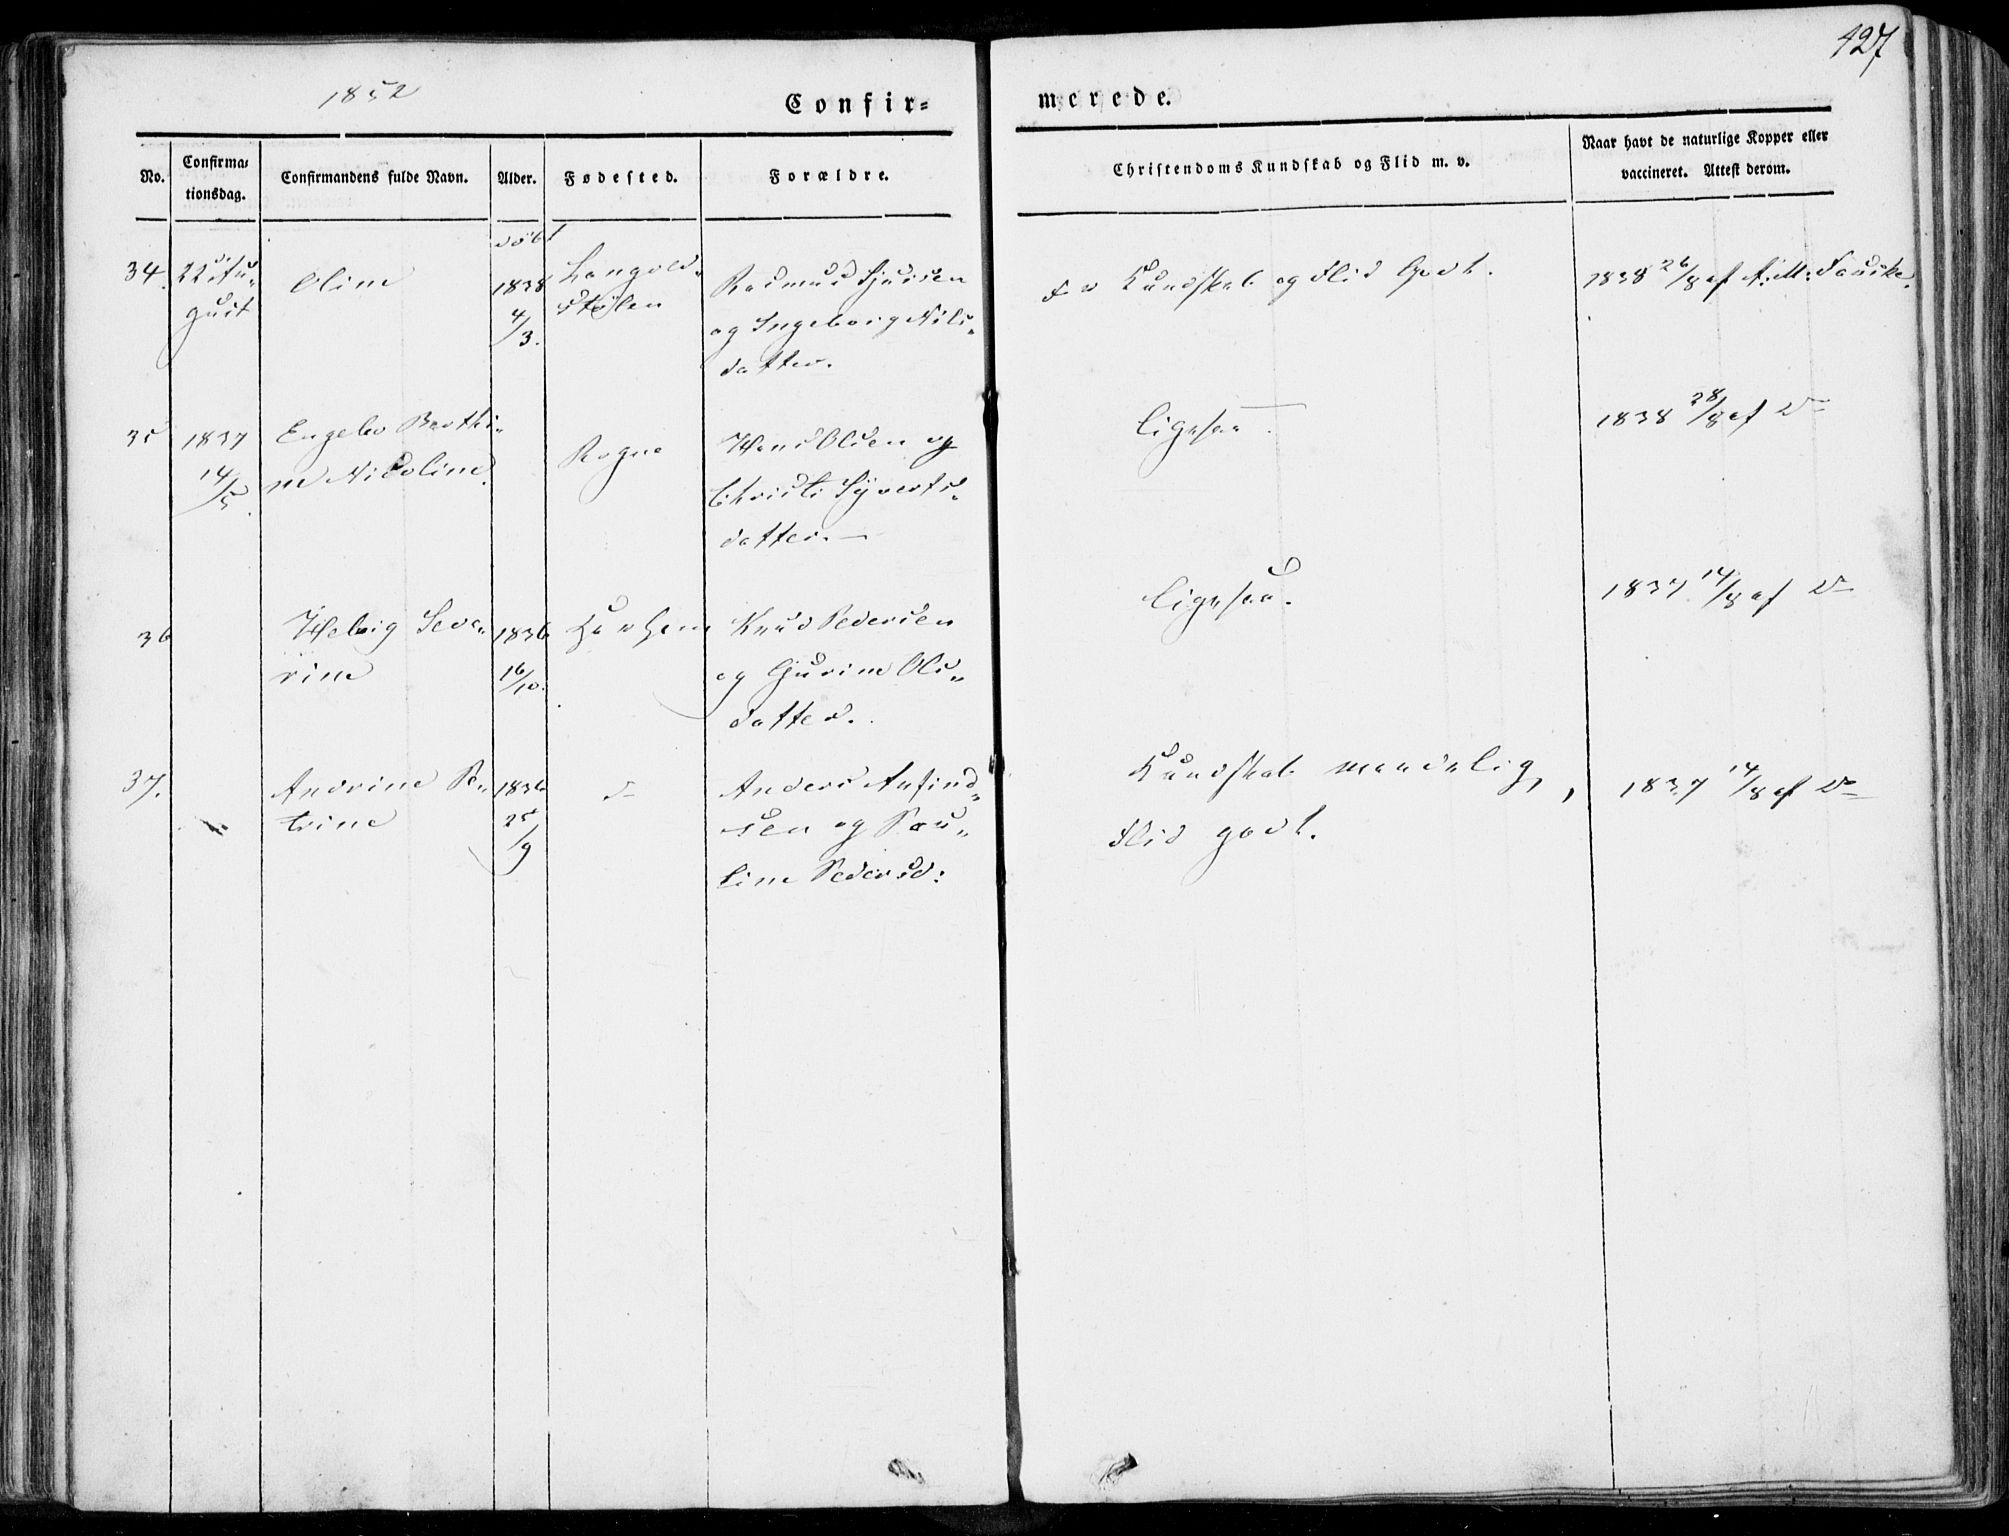 127
1852
Confir=
merede.
No.
Confirma=
tionsdag.
Confirmandens fulde Navn.
Alder.
Fødested.
Forældre.
Christendoms Kundskab og Flid m. v.
Naar havt de naturlige Kopper eller
vaccineret. Attest derom.
døbt
34. 22 Au-
gust
Oline
1838
4/3.
Langold-
stølen
Rasmus Sjursen
og Ingeborg Nils-
datter.
Kundskab og Flid Godt.
1838 26/8 af A: M: Fauske.
35 1837
14/5.
Engebo Berthi-
ne Nicoline.
Rogne
Hans Olsen og
Christi Syverts-
datter. —
ligesaa —.
1838 28/8 af Do
36
Helvig Seve-
rine
1836
16/10.
Knud Pedersen
og Gjurine Ols-
datter.
ligesaa.
1837 14/8 af Do
37.
Andrine Pe-
trine
1836
25/9
do
Anders Anfind-
sen og Pau-
line Pedersd:
Kundskab maadelig,
Flid godt.
1837 14/8 af Do